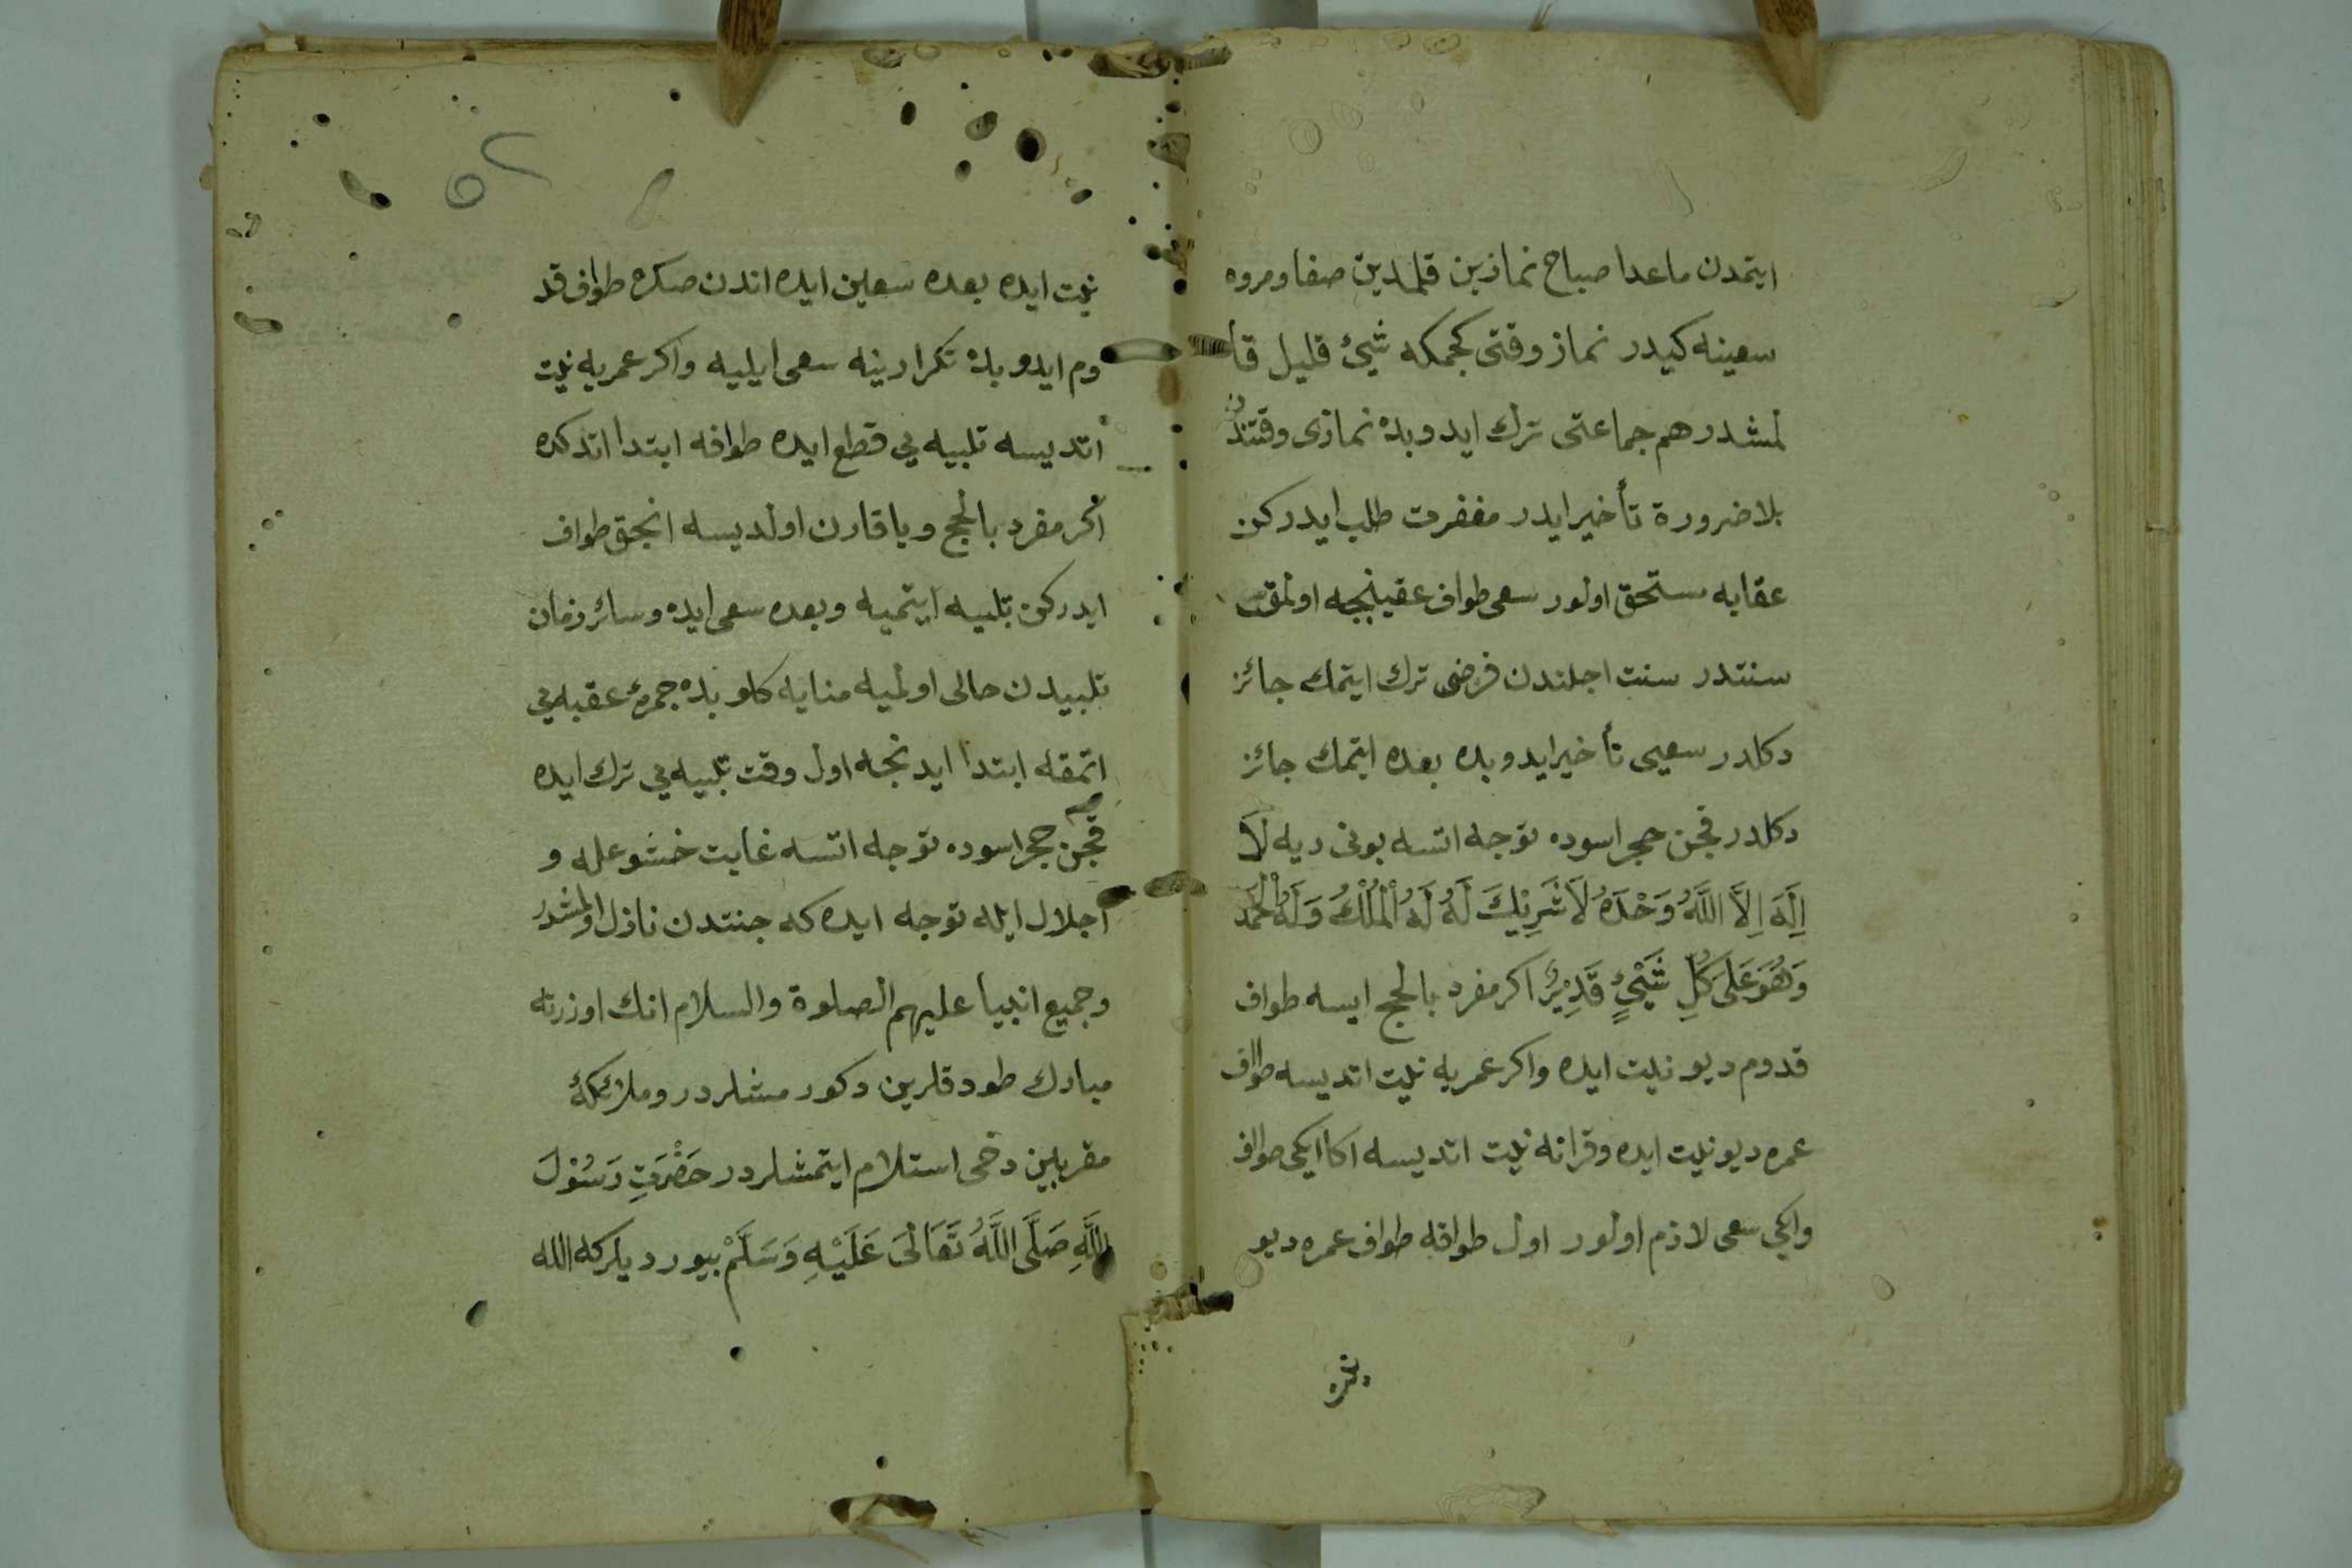 ايتمدن ماعدا صباح نمازين قلمادين صفا ومروه
سعينه كيدر نماز وقتى كجمكه شئ قليل قا
لمشدر هم جماعتى ترك ايدوبده نمازى وقتندن
بلا ضرورة تأخير ايدر مغفرت طلب ايدركن
عقابه مستحق اولور سعى طواف عقبنجه اولمق
سنتدر سنت اجلندن فرضى ترك ايتمك جائز
دكلدر سعيى تأخير ايدوبده بعده ايتمك جائز
دكلدر قچن حجر اسوده توجه اتسه بونى ديه لَا
اِلَهَ اِلَّا اللَّهُ وَحْدَهُ لَا شَرِيْكَ لَهُ لَهُ الْمُلْكُ وَلَهُ الْحَمْدُ
وَهُوَ عَلَى كُلِّ شَيْئٍ قَدِيْرٌ اكر مفرد بالحج ايسه طواف
قدوم ديو نيت ايده واكر عمريه نيت اتديسه طواف
عمره ديو نيت ايده وقرانه نيت اتديسه اكا ايكى طواف
وايكى سعى لازم اولور اول طوافه طواف عمره ديو
نيت
٥٢
نيت ايده بعده سعين ايده اندن صكره طواف قد
وم ايدوبده تكرار ينه سعى ايليه واكر عمريه نيت
اتديسه تلبيه يي قطع ايده طوافه ابتدا اتدكده
اكر مفرد بالحج ويا قارن اولديسه انجق طواف
ايدركن تلبيه ايتميه وبعده سعى ايده وسائر زمان
تلبيدن خالى اولميه منايه كلوبده جمرهٔ عقبه يي
اتمقه ابتدا ايدنجه اول وقت تلبيه يي ترك ايده
قچن حجر اسوده توجه اتسه غايت خشوعله و
اجلال ايله توجه ايده كه جنتدن نازل اولمشدر
وجميع انبيا عليهم الصلوة والسلام انك اوزرنه
مبارك طوداقلرين دكورمشلردر وملائكهٔ
مقربين دخى استلام ايتمشلردر حَضْرَتِ رَسُوْلَ
اللَّهِ صَلَّى اللَّهُ تَعَالَى عَلَيْهِ وَسَلَّمْ بيورديلركه الله